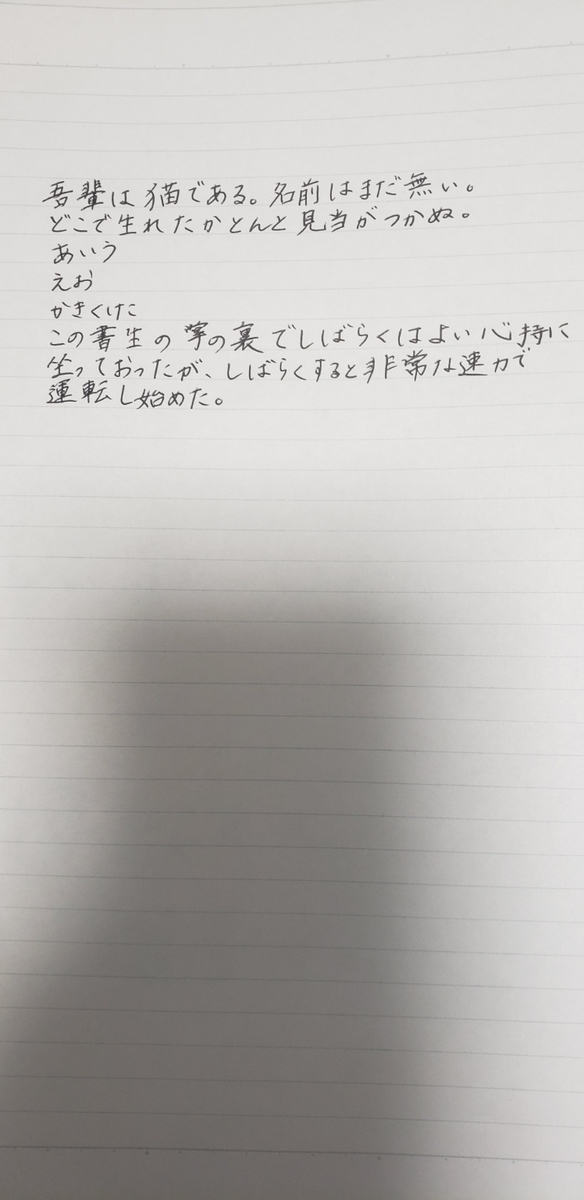 吾輩は猫である。名前はまだ無い。
どこで生れたかとんと見当がつかぬ。
あいう
えお
かきくけこ
この書生の掌の裏でしばらくはよい心持に
坐っておったが、しばらくすると非常な速力で
運転し始めた。